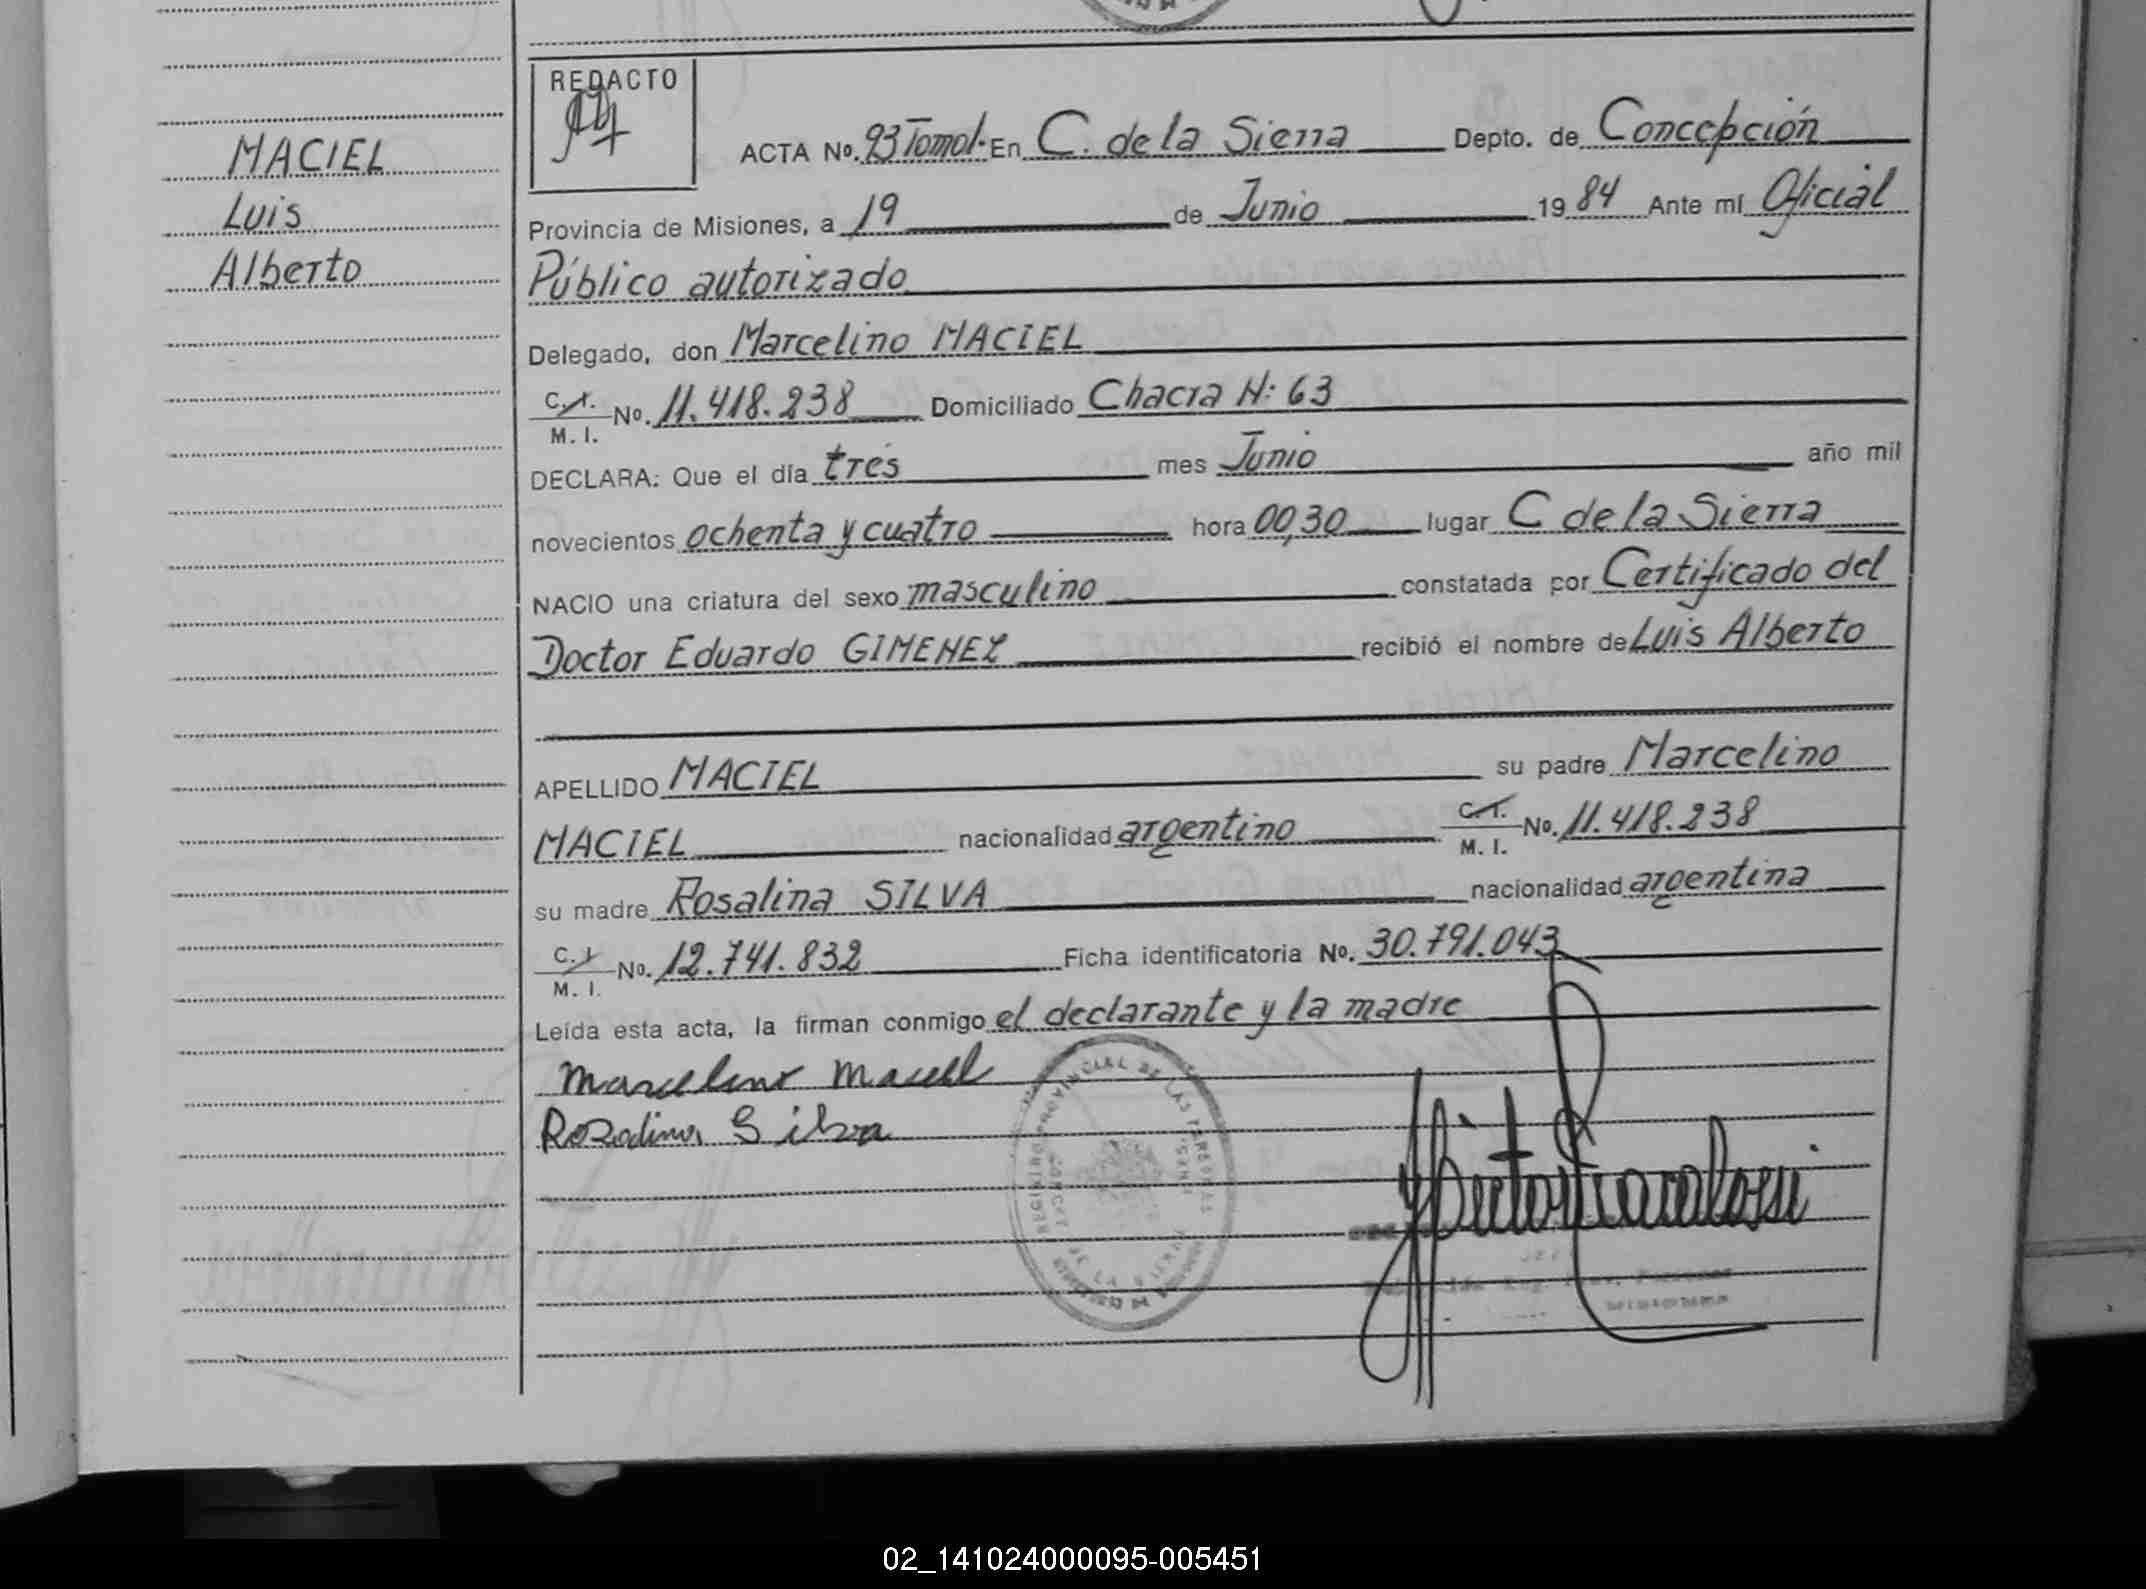 MACIEL
Luis
Alberto
REDACTO
ACTA No. 93 Tomo I. En C. de la Sierra Depto. de Concepción
Provincia de Misiones, a 19 de Junio 1984 Ante mí Oficial
Público autorizado
Delegado, don Marcelino MACIEL
C.I.
M. I. No. 11.418.238 Domiciliado Chacra N: 63
DECLARA: Que el día tres mes Junio año mil
novecientos ochenta y cuatro hora 00,30 lugar C de la Sierra
NACIO una criatura del sexo masculino constatada por Certificado del
Doctor Eduardo GIMENEZ recibió el nombre de Luis Alberto
APELLIDO MACIEL su padre Marcelino
MACIEL nacionalidad argentino C.I. M. I. No. 11.418.238
su madre Rosalina SILVA nacionalidad argentina
C.I. M. I. No. 12.741.832 Ficha identificatoria No. 30.791.043
Leída esta acta, la firman conmigo el declarante y la madre
Marcelino Maciel
Rosalina Silva
REGISTRO PROVINCIAL DE LAS PERSONAS
DE LA SIERRA
02_141024000095-005451